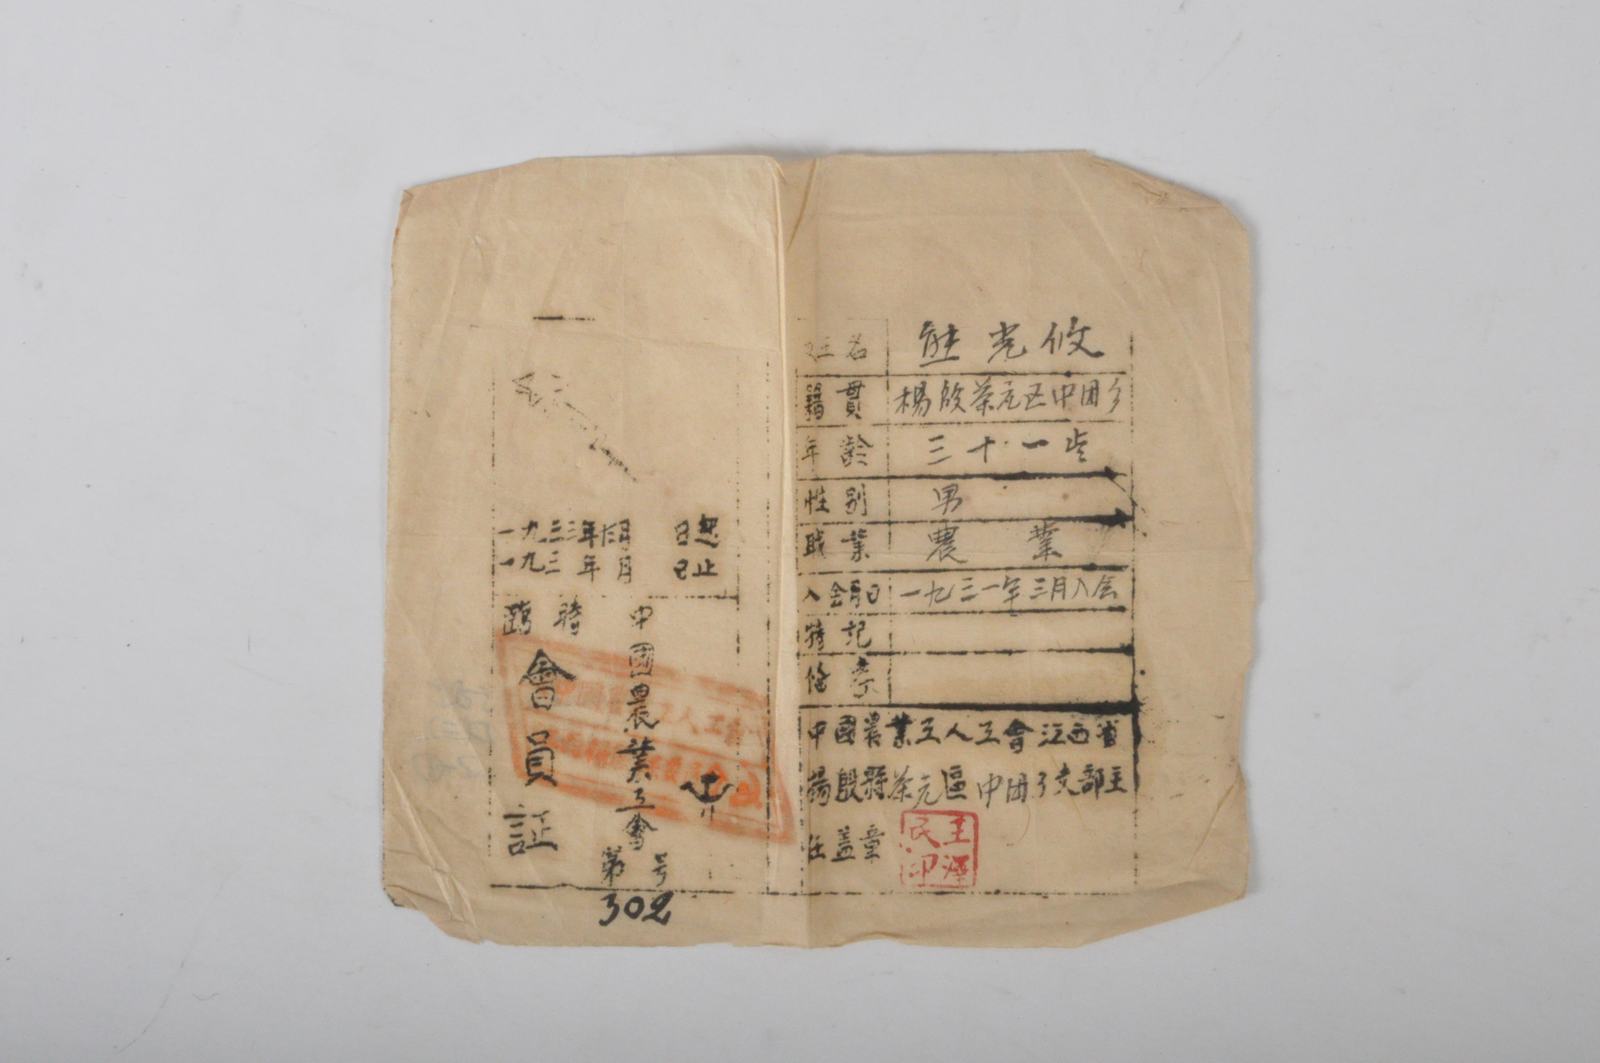 姓名 熊光攸
籍貫 楊殷茶元区中团乡
年齡 三十一歲
性别 男
職業 農業
入会年月日 一九三一年三月入会
特記
偹考
中國農業工人工會江西省
楊殷縣茶元區中团乡支部主
任盖章
王澤民印
一九三三年 月 日起
一九三 年 月 日止
中國農業工會
會員証
第 号
302